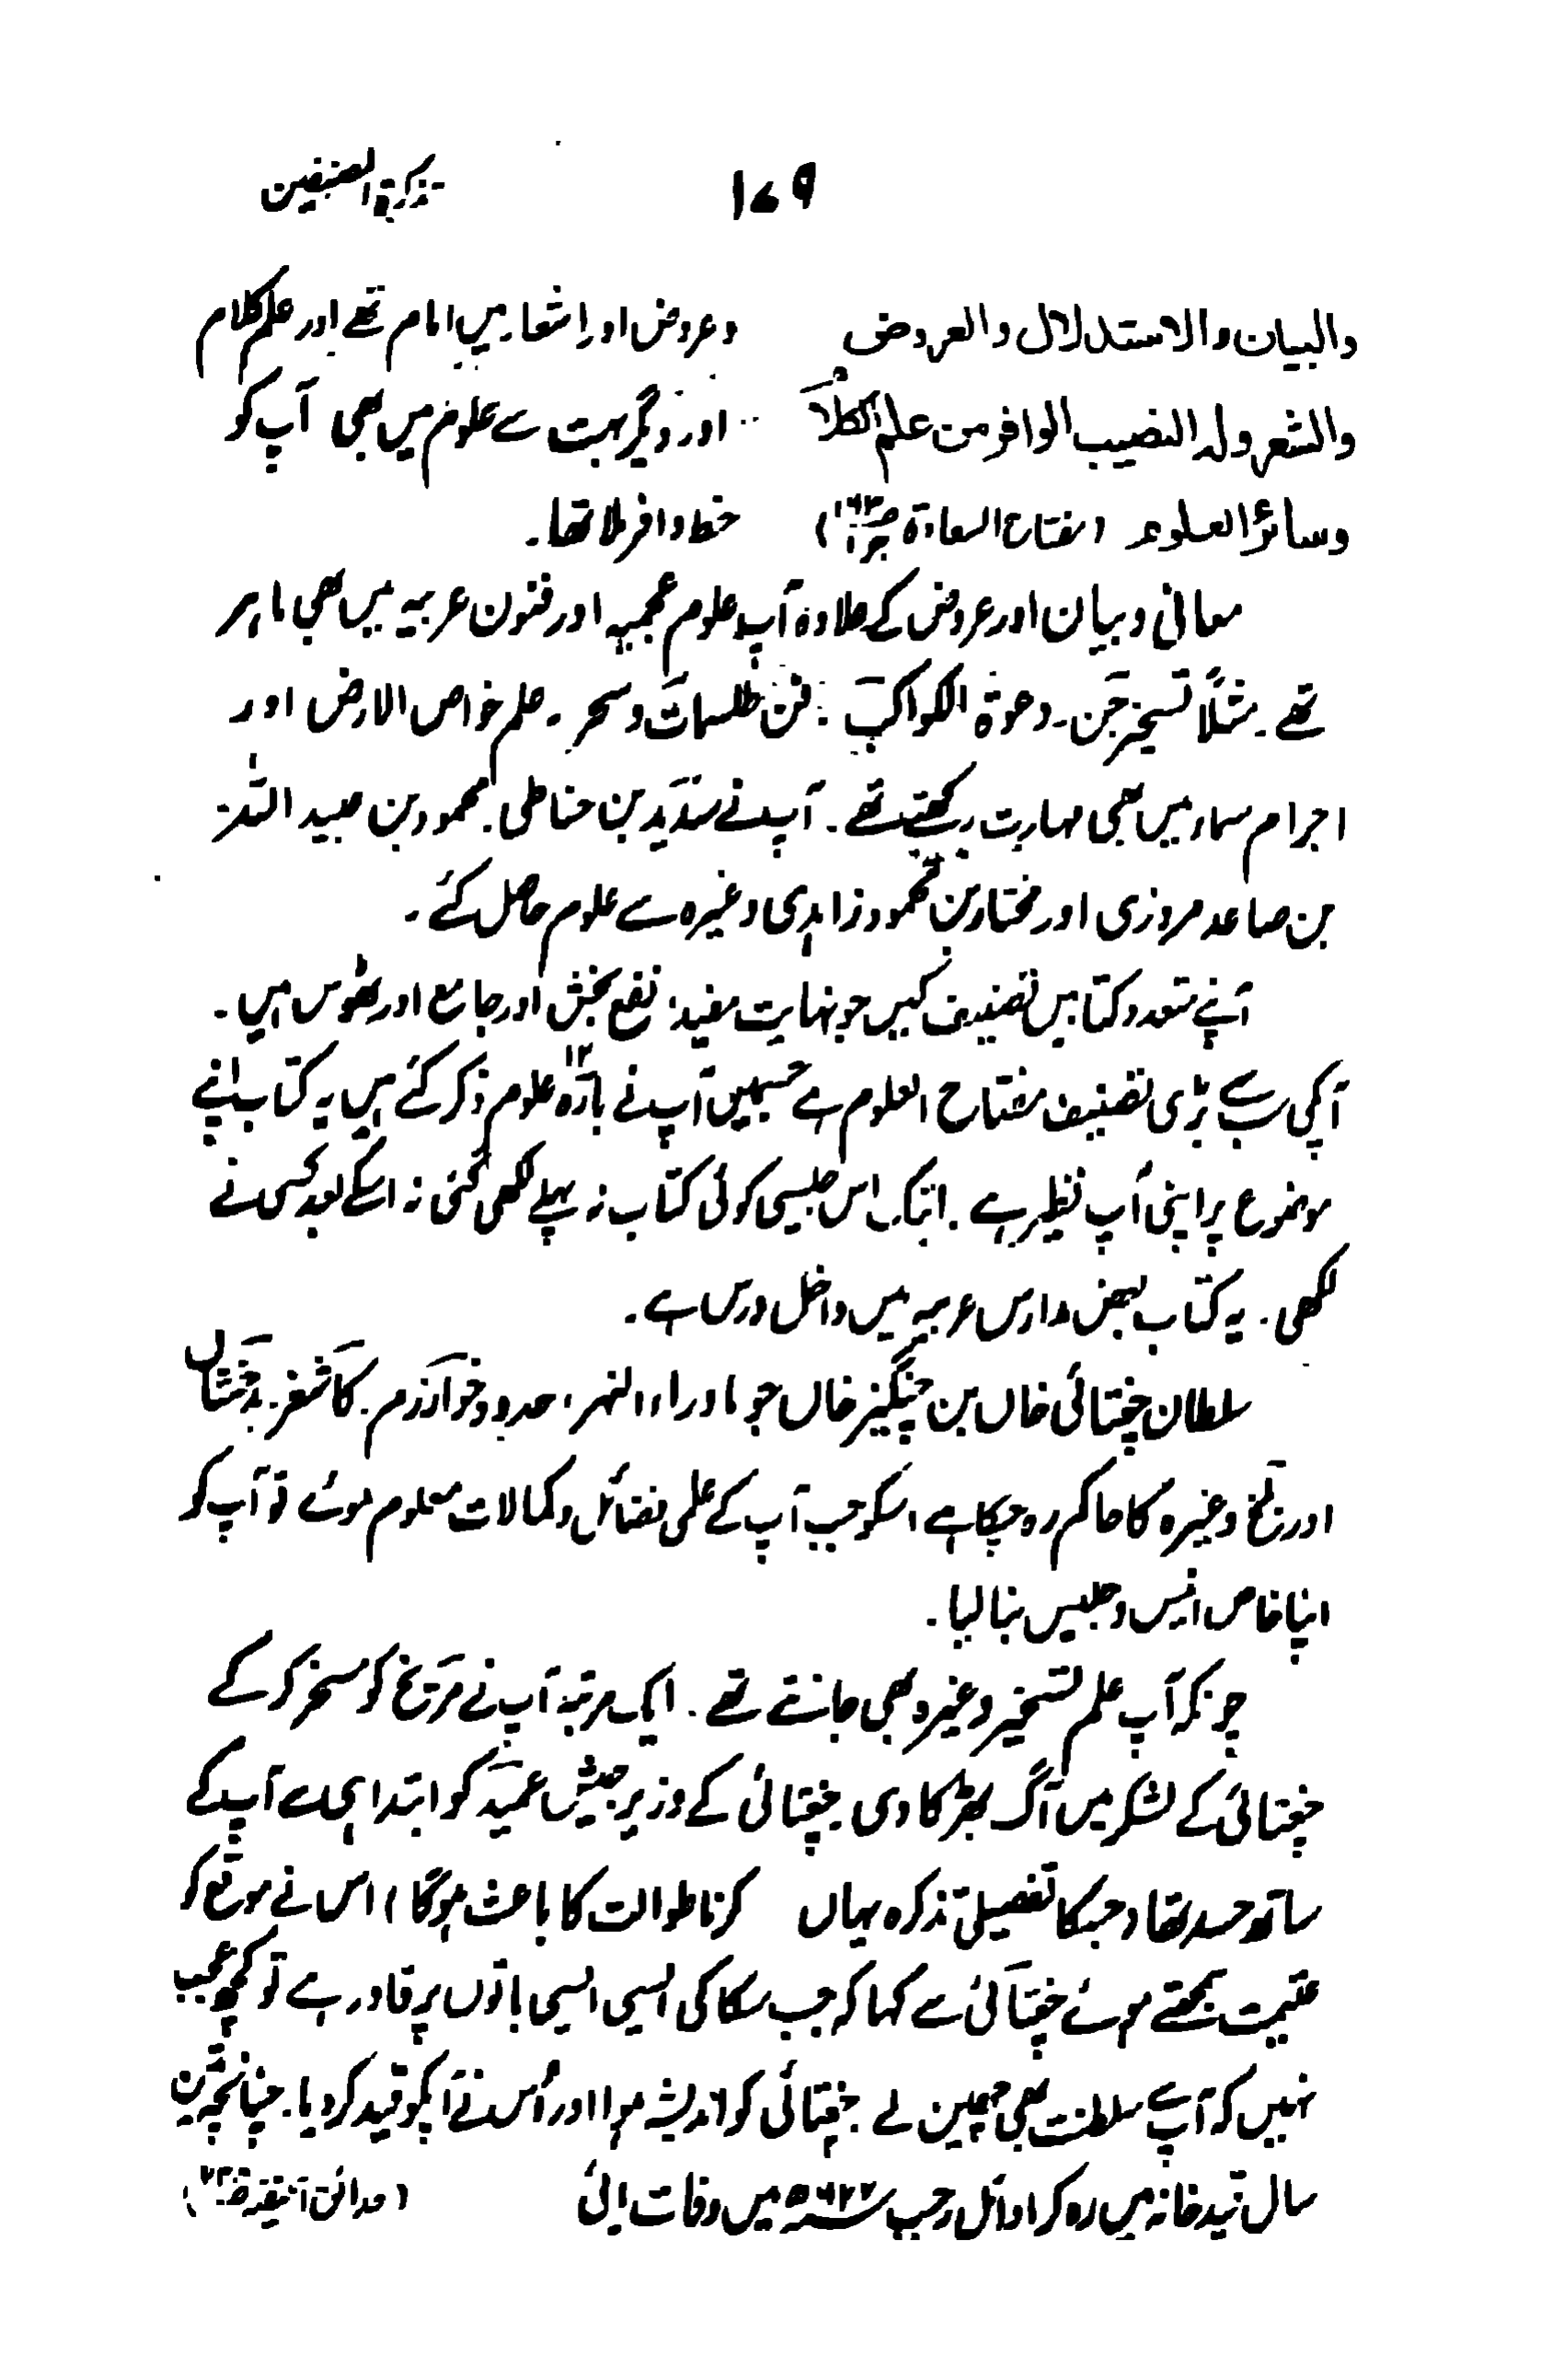 تذکرۃ المصنفین
۱۷۹
والبیان والاستدلال والعروض
والشعر ولہ النصیب الوافر من علم الکلام
وسائر العلوم (مفتاح السعادۃ
وعروض اور اشعار میں امام تھے اور علم کلام
اور دیگر بہت سے علوم میں بھی آپ کو
حظ وافر ملا تھا۔
معانی و بیان اور عروض کے علاوہ آپ علوم عجمیہ اور فنون عربیہ میں بھی ماہر
تھے۔ مثلاً تسخیر جن۔ دعوۃ الکواکب۔ فن طلسمات و سحر۔ علم خواص الارض اور
اجرام سماء میں بھی مہارت رکھتے تھے۔ آپ نے سدید بن حناطی۔ محمود بن عبید اللہ
بن صاعد مروزی اور مختار بن محمود زاہدی وغیرہ سے علوم حاصل کئے۔
آپنے متعدد کتابیں تصنیف کیں جو نہایت مفید، نفع بخش اور جامع اور ٹھوس ہیں۔
آپکی سب سے بڑی تصنیف مفتاح العلوم ہے جسمیں آپ نے بارہ۱۲ علوم ذکر کئے ہیں یہ کتاب اپنے
موضوع پر اپنی آپ نظیر ہے۔ ابتک اس جیسی کوئی کتاب نہ پہلے لکھی گئی نہ اسکے بعد کسی نے
لکھی۔ یہ کتاب بعض مدارس عربیہ میں داخل درس ہے۔
سلطان چغتائی خاں بن چنگیز خاں جو ماوراء النہر، حدود خوارزم۔ کاشغر۔ بدخشاں
اور بلخ وغیرہ کا حاکم رہ چکا ہے، اسکو جب آپ کے علمی فضائل و کمالات معلوم ہوئے تو آپ کو
اپنا خاص انیس و جلیس بنا لیا۔
چونکہ آپ علم تسخیر وغیرہ بھی جانتے تھے۔ ایک مرتبہ آپ نے مریخ کو مسخر کر کے
چغتائی کے لشکر میں آگ بھڑکا دی۔ چغتائی کے وزیر حبیش عمید کو ابتدا ہی سے آپ کے
ساتھ حسد تھا (جسکا تفصیلی تذکرہ یہاں کرنا طوالت کا باعث ہوگا) اس نے موقع کو
غنیمت سمجھتے ہوئے چغتائی سے کہا کہ جب سکاکی ایسی ایسی باتوں پر قادر ہے تو کچھ عجب
نہیں کہ آپ سے سلطنت بھی چھین لے۔ چغتائی کو اندیشہ ہوا اور اُس نے آپکو قید کر دیا۔ چنانچہ تین
سال قید خانہ میں رہ کر اوائل رجب ۶۲۶ھ میں وفات پائی
(حدائق الحنفیہ